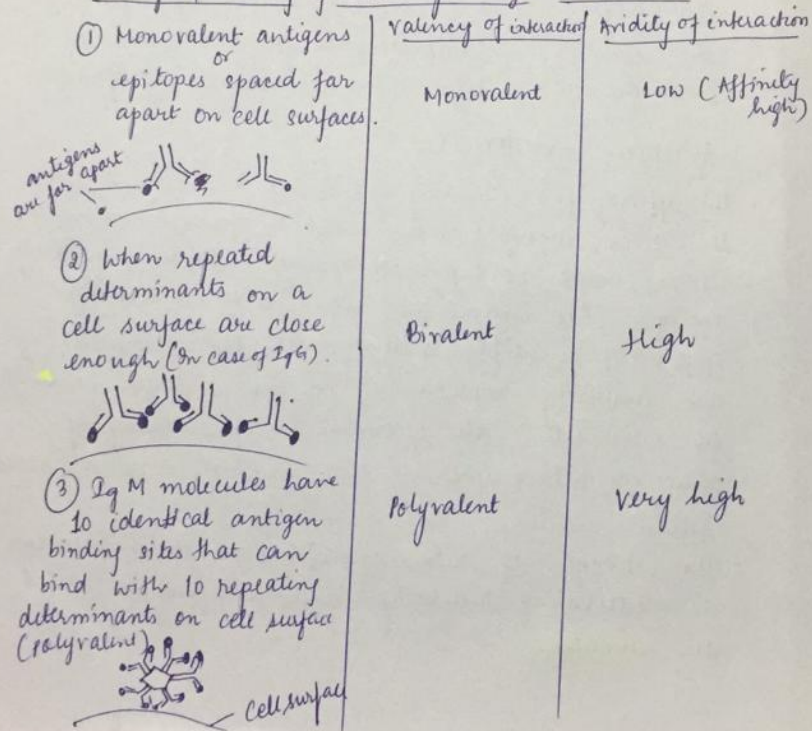 Valency of interaction
Avidity of interaction
① Monovalent antigens
or
epitopes spaced far
apart on cell surfaces.
Monovalent
Low (Affinity
high)
antigens
are far apart
② When repeated
determinants on a
cell surface are close
enough (In case of IgG).
Bivalent
High
③ Ig M molecules have
10 identical antigen
binding sites that can
bind with 10 repeating
determinants on cell surface
(polyvalent)
Polyvalent
Very high
Cell surface